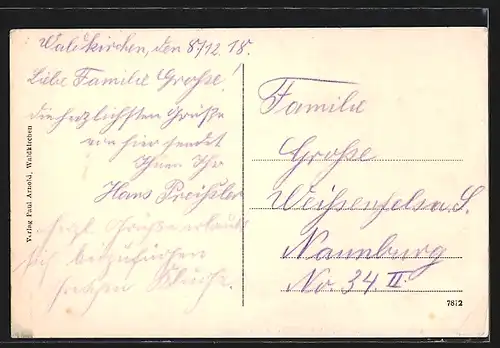 Waldkirchen, den 8/12. 18.
Liebe Familie Große!
die herzlichsten Grüße
von hier sendet
Ihnen Ihr
Hans Preißler
herzl. Grüße erlaubt
sich beizufügen
Familie
Große
Weißenfels a. S.
Naumburg
No. 34 II.
Verlag Paul Arnold, Waldkirchen
7812